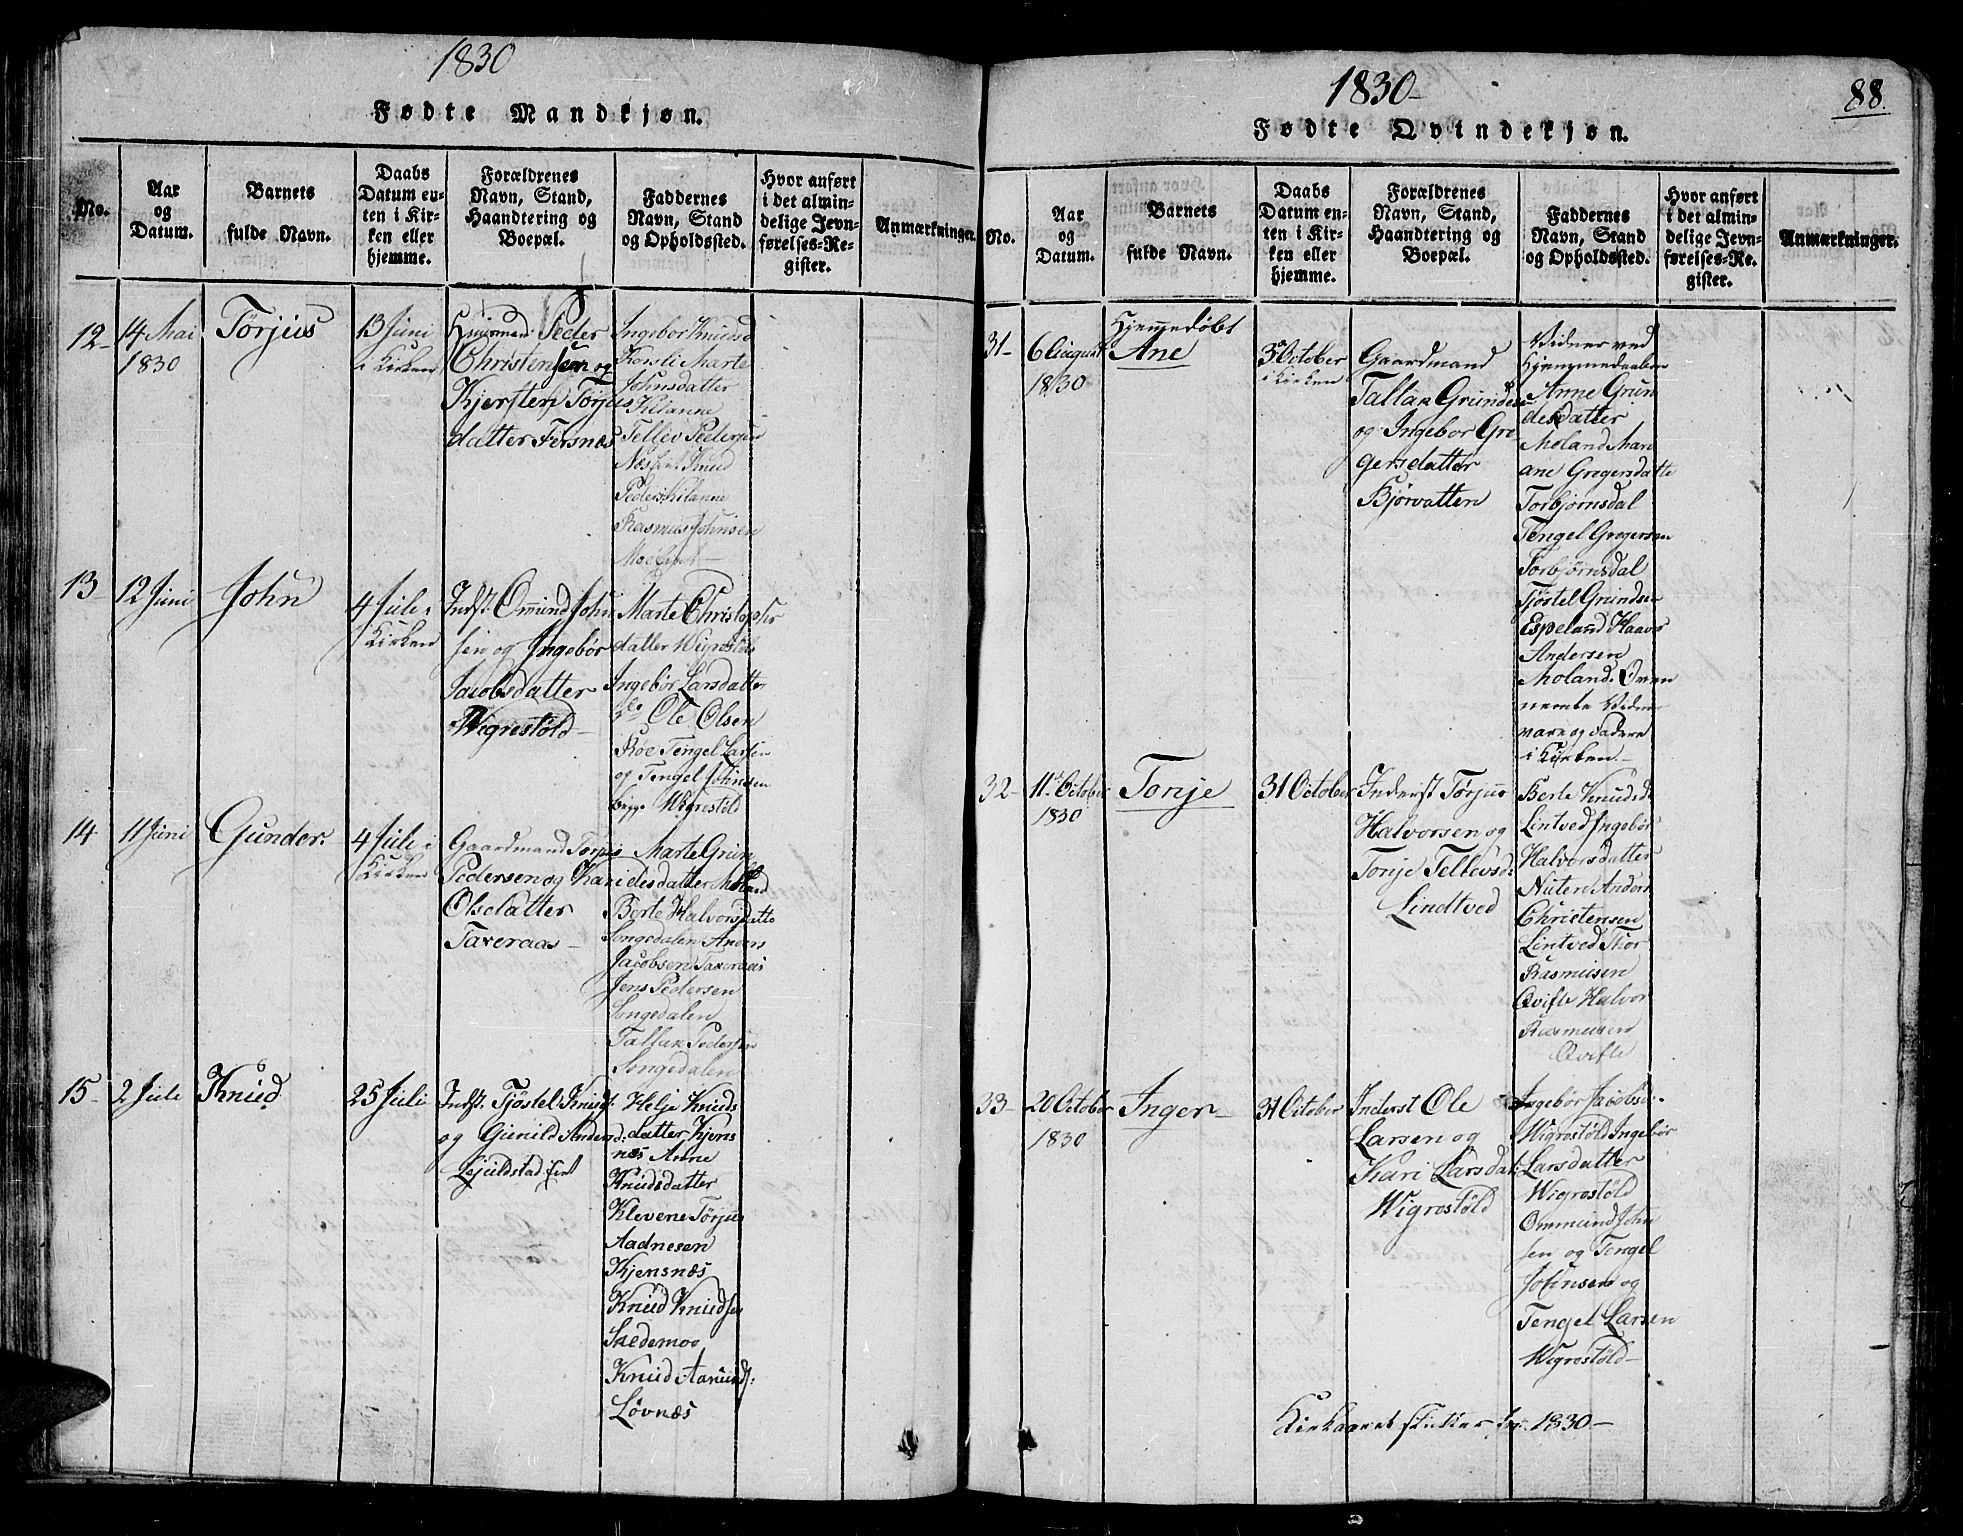 1830
Fødte Mandkjøn.
No.
Aar
og
Datum.
Barnets
fulde Navn.
Daabs
Datum en-
ten i Kir-
ken eller
hjemme.
Forældrenes
Navn, Stand,
Haandtering og
Boepæl.
Faddernes
Navn, Stand
og Opholdssted.
Hvor anført
i det almin-
delige Jevn-
førelses-Re-
gister.
Anmærkninger.
12-
14 Mai
1830
Torjus
13 Juni
i Kirken
Peder
Christensen og
Kjersten Torjus
datter Fersnæs
Ingebor Knudsd
Marte
Johnsdatter
Kilanne
Tellev Pedersen
Næs Knud
Peders Kilanne
Rasmus Johnsen
Moe
13
12 Juni
John
4 Juli i
Kirken
Indst. Omund John
sen og Ingebor
Jacobsdatter
Wigrestöld-
Marte Christophr
datter Wigrestöld
Ingebor Larsdatter
do Ole Olsen
Röe Tengel Larsen
og Tengel Johnsen
begge Wigrestöld
14
11 Juni
Gunder.
4 Juli i
Kirken
Gaardmand Torjus
Pedersen og Kari
Olsdatter
Taxeraas-
Marte Grun
desdatter Moland
Berte Halvorsdatte
Songedalen Anders
Jacobsen Taxeraas
Jens Pedersen
Songedalen
Tallak Pedersen
Songedalen
15-
2 Juli
Knud
25 Juli
Indst. Tjøstel Knuds:
og Gunild Andersd:
Ljuldstad
Helje Knuds
datter Kjens
næs Anne
Knudsdatter
Klevene Torjus
Aadnesen
Kjensnæs
Knud Knudsen
Saedemoe
Knud Aanunds:
Løvnæs
1830-
88.
Fødte Qvindekjøn.
No.
Aar
og
Datum.
Barnets
fulde Navn.
Daabs
Datum en-
ten i Kir-
ken eller
hjemme.
Forældrenes
Navn, Stand,
Haandtering og
Boepæl.
Faddernes
Navn, Stand
og Opholdssted.
Hvor anført
i det almin-
delige Jevn-
førelses-Re-
gister.
Anmærkninger.
31-
6 August
1830
Hjemmedøbt
Ane
3 October
i Kirken
Gaardmand
Tallak Grundes
og Ingebor Gre
gersdatter
Bjorvatten
Vidner ved
Hjemmedaaben
Anne Grun
desdatter
Moland Mari
ane Gregersdatte
Torbjornsdal
Tengel Gregersen
Torbjørnsdal
Tjøstel Grundsen
Espeland Haavo
Andersen
Moland. Oven
nevnte Vidner
vare og Fadere
i Kirken.-
32-
11 October
1830
Tonje
31 October
Inderst Torjus
Halvorsen og
Tonje Tellevsd:
Lindtved
Berte Knudsd:
Lintved Ingebor
Halvorsdatter
Nuten Anders
Christensen
Lintved Thor
Rasmusen
Qvifte Halvor
Rasmusen
Qvifte
33-
20 October
1830
Inger-
31 October
Inderst Ole
Larsen og
Kari Larsdat:
Wigrestöld
Ingebor Jacobsd:
Wigrestöld Ingebor
Larsdatter
Wigrestöld
Ommund John
sen og Tengel
Johnsen og
Tengel Larsen
Wigrestöld-
Kirkaaret slutter for 1830-